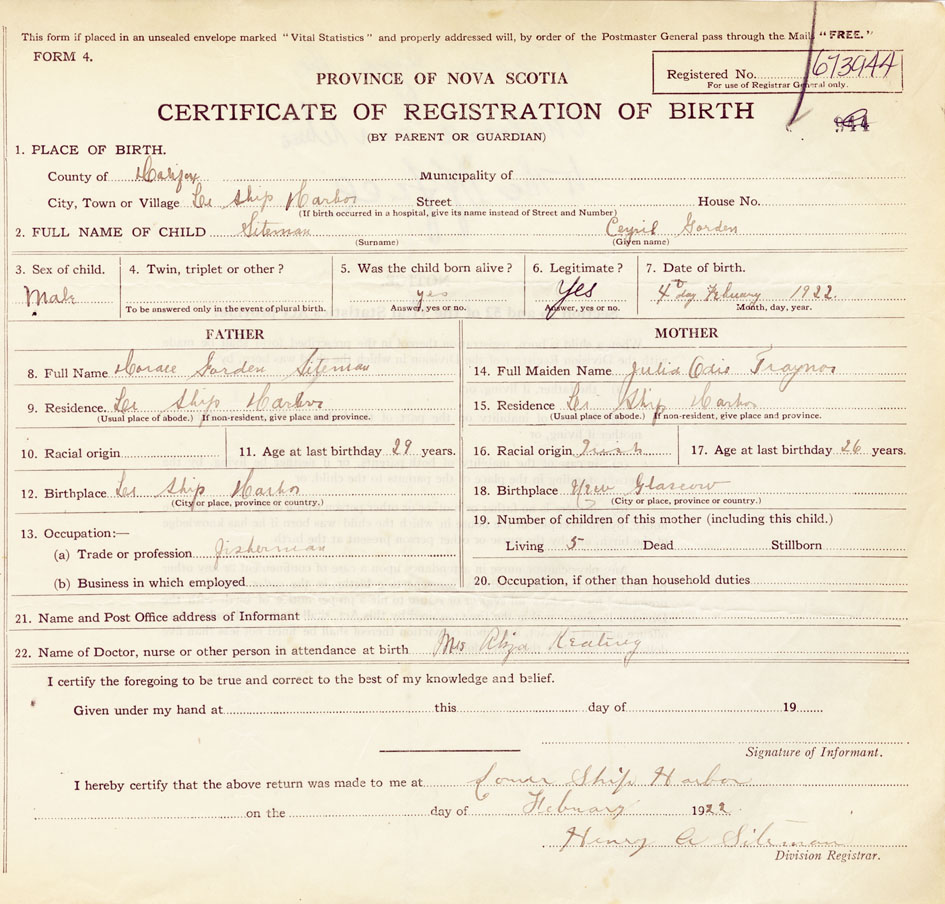 This form if placed in an unsealed envelope marked "Vital Statistics" and properly addressed will, by order of the Postmaster General pass through the Mail "FREE."
FORM 4.
PROVINCE OF NOVA SCOTIA
Registered No. 673944
For use of Registrar General only.
CERTIFICATE OF REGISTRATION OF BIRTH
944
(BY PARENT OR GUARDIAN)
1. PLACE OF BIRTH.
County of Halifax Municipality of
City, Town or Village Lr Ship Harbor Street House No.
(If birth occurred in a hospital, give its name instead of Street and Number)
2. FULL NAME OF CHILD Siteman Ceyril Gorden
(Surname) (Given name)
3. Sex of child. 4. Twin, triplet or other? 5. Was the child born alive? 6. Legitimate? 7. Date of birth.
Male yes Yes 4th day Febuary 1922.
To be answered only in the event of plural birth. Answer, yes or no. Answer, yes or no. Month, day, year.
FATHER MOTHER
8. Full Name Horace Gorden Siteman 14. Full Maiden Name Julia Odis Traynor
9. Residence. Lr Ship Harbor 15. Residence Lr Ship Harbor
(Usual place of abode.) If non-resident, give place and province. (Usual place of abode.) If non-resident, give place and province.
10. Racial origin 11. Age at last birthday 29 years. 16. Racial origin Irish 17. Age at last birthday 26 years.
12. Birthplace Lr Ship Harbor 18. Birthplace New Glascow
(City or place, province or country.) (City or place, province or country.)
13. Occupation:— 19. Number of children of this mother (including this child.)
(a) Trade or profession fisherman Living 5 Dead Stillborn
(b) Business in which employed 20. Occupation, if other than household duties
21. Name and Post Office address of Informant
22. Name of Doctor, nurse or other person in attendance at birth Mrs Keating
I certify the foregoing to be true and correct to the best of my knowledge and belief.
Given under my hand at this day of 19
Signature of Informant.
I hereby certify that the above return was made to me at Lower Ship Harbor
on the day of Febuary 1922.
Henry A Siteman
Division Registrar.